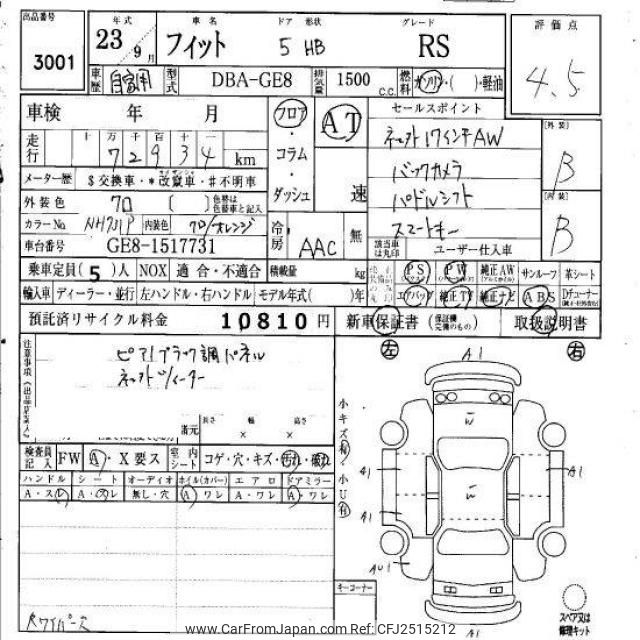 出品番号 3001
年式 23 9月
車名 フィット
ドア 形状 5 HB
グレード RS
評価点 4.5
車歴 自家用
型式 DBA-GE8
排気量 1500 c.c.
燃料 ガソリン・( )・軽油
車検 年 月
フロア・コラム・ダッシュ
AT 速
セールスポイント
ネット17インチAW
バックカメラ
パドルシフト
スマートキー
[外装] B
[内装] B
走行 十 万 千 百 十 一
7 2 9 3 4 km
メーター歴 $交換車・*改竄車・#不明車
外装色 クロ [ ] 色替は色替車と記入
カラーNo. NH731P 内装色 クロ/オレンジ
冷房 AAC 無
車台番号 GE8-1517731
該当車は丸印 ユーザー仕入車
乗車定員(5)人 NOX 適合・不適合 積載量 kg
PS PW 純正AW サンルーフ 革シート
輸入車 ディーラー・並行 左ハンドル・右ハンドル モデル年式( )年
エアバッグ 純正TV 純正ナビ ABS Dチューナー
預託済リサイクル料金 10810円
新車保証書 (保証継完備のもの) 取扱説明書
注意事項(出品店記入)
ピアノブラック調パネル
ネットツィーター
長さ 幅 高さ
× ×
検査員記入 FW A・X要ス 室内シート コゲ・穴・キズ・汚れ・擦れ
ハンドル シート オーディオ ホイル(カバー) エアロ ドアミラー
A・スレ A・スレ 無し・穴 A・ワレ A・ワレ A・ワレ
左 右
A1
小キズ有・小U有
W
A1 A1
W
A1
AU1
A1
キーコーナー
スペア又は修理キット
www.CarFromJapan.com Ref: CFJ2515212